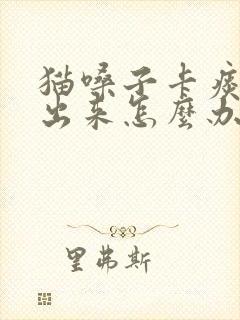 猫嗓子卡痰
出来怎麼办
里弗斯